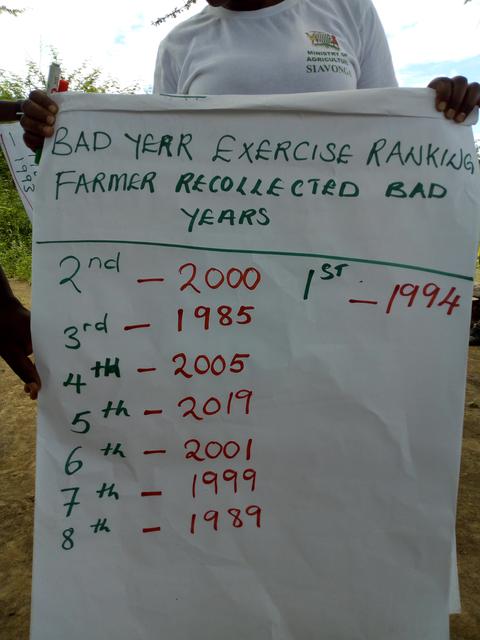 MINISTRY OF
AGRICULTURE
SIAVONGA
BAD YEAR EXERCISE RANKING
FARMER RECOLLECTED BAD
YEARS
2nd – 2000
3rd – 1985
4TH – 2005
5th – 2019
6th – 2001
7th – 1999
8th – 1989
1ST – 1994
1993